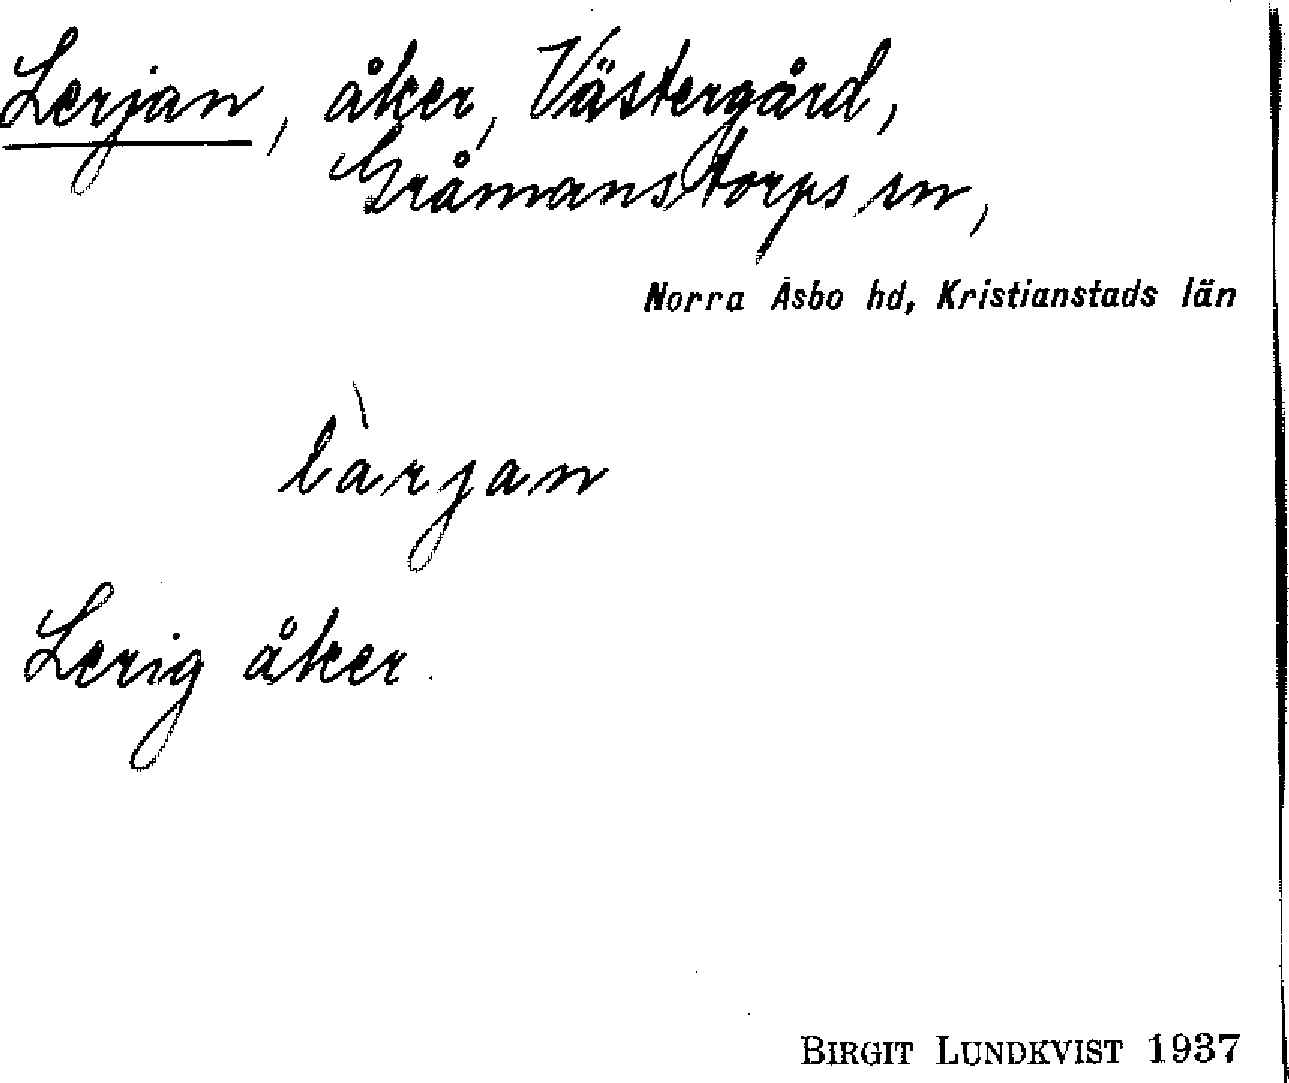 Lerjan, åker, Västergård,
Gråmanstorps sn,
Norra Åsbo hd, Kristianstads län
làrjan
Lerig åker.
BIRGIT LUNDKVIST 1937